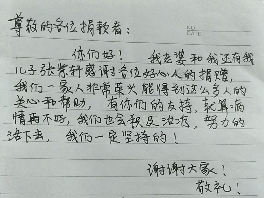 尊敬的各位捐款者：
你们好！ 我老婆和我还有我
儿子张紫轩感谢各位好心人的捐赠，
我们一家人非常荣兴能得到这么多人的
关心和帮助，有你们的支持，就算病
情再不好，我们也会积极治疗，努力的
活下去，我们一定坚持的！
谢谢大家！
敬礼！